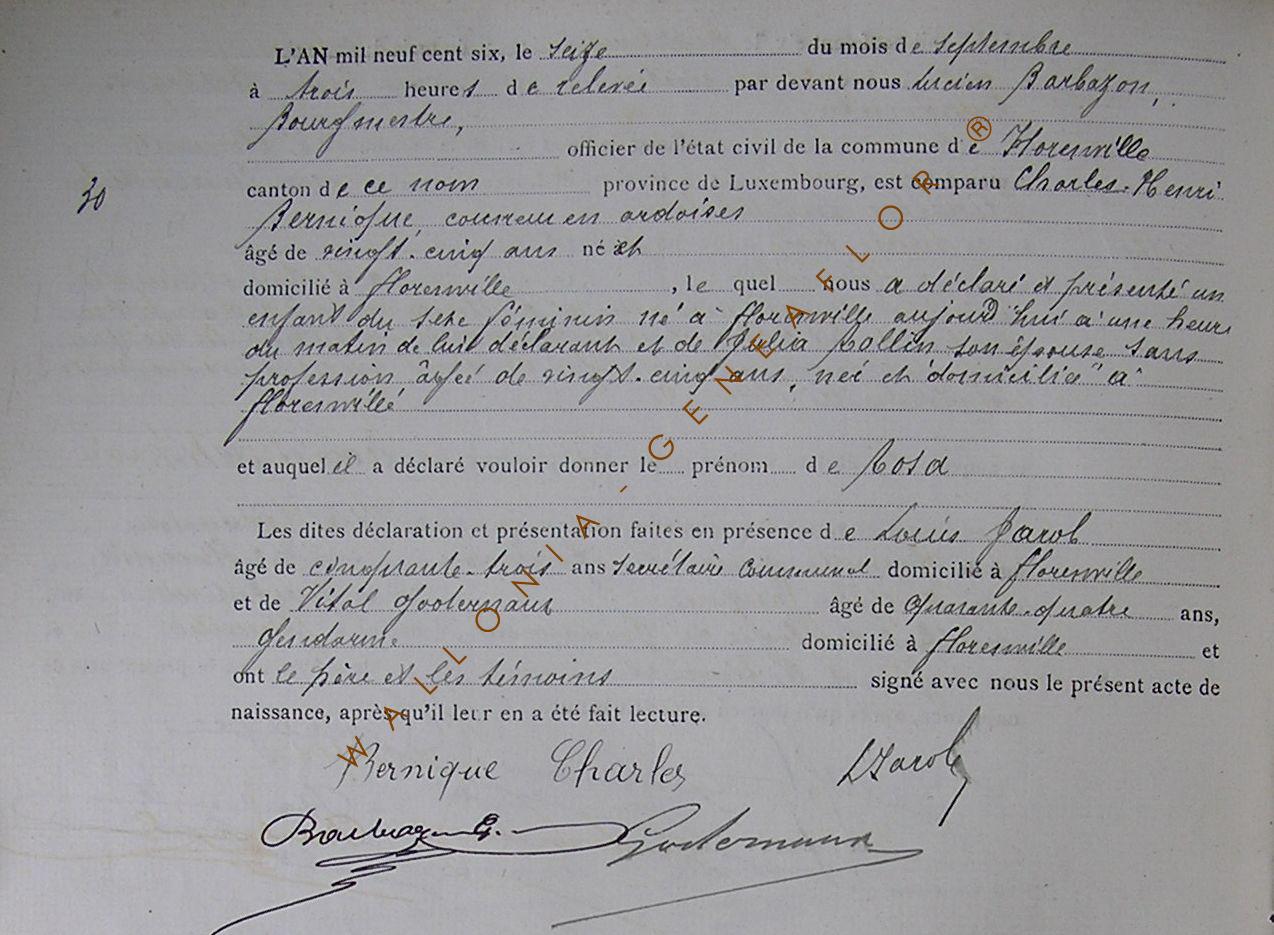 L'AN mil neuf cent six, le seize du mois de septembre
à trois heures de relevée par devant nous Lucien Barbazon,
Bourgmestre,
officier de l'état civil de la commune de Florenville
30
canton de ce nom province de Luxembourg, est comparu Charles-Henri
Bernique, couvreur en ardoises
âgé de vingt-cinq ans né et
domicilié à Florenville, le quel nous a déclaré et présenté un
enfant du sexe féminin né à Florenville aujourd'hui à une heure
du matin de lui déclarant et de Julia Collin son épouse sans
profession âgée de vingt-cinq ans, née et domiciliée à
Florenville
et auquel il a déclaré vouloir donner le prénom de Rosa
Les dites déclaration et présentation faites en présence de Louis Jarol
âgé de cinquante-trois ans secrétaire communal domicilié à Florenville
et de Vital Gooternaux âgé de quarante-quatre ans,
gendarme domicilié à Florenville et
ont le père et les témoins signé avec nous le présent acte de
naissance, après qu'il leur en a été fait lecture.
Bernique Charles LJarol
WALLONIA-GENEAFLOR®